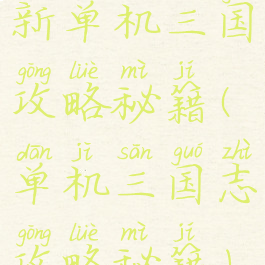 新单机三国
gōng lüè mì jí
攻略秘籍(
dān jī sān guó zhì
单机三国志
gōng lüè mì jí
攻略秘籍)